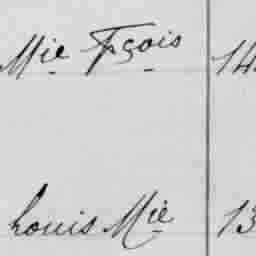 Mie Fçois 14
Louis Mie 13